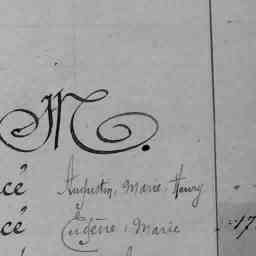 M.
ce" Augustin, Marie, Henry " "
ce" Eugène, Marie =17